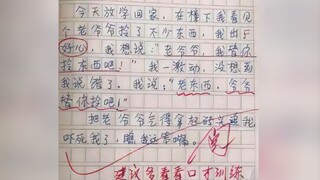 今天放学回家，在楼下我看见
个老爷爷拎了不少东西，我出于
好心，我想说：“老爷爷，我替你
拎东西吧！”我一激动，没想到
我说错了。我说：“老东西，爷爷
替你拎吧！”
把老爷爷气得拿起
我，
吓死我了，瞧我这
嘴。
阅
建议多看看口才训练